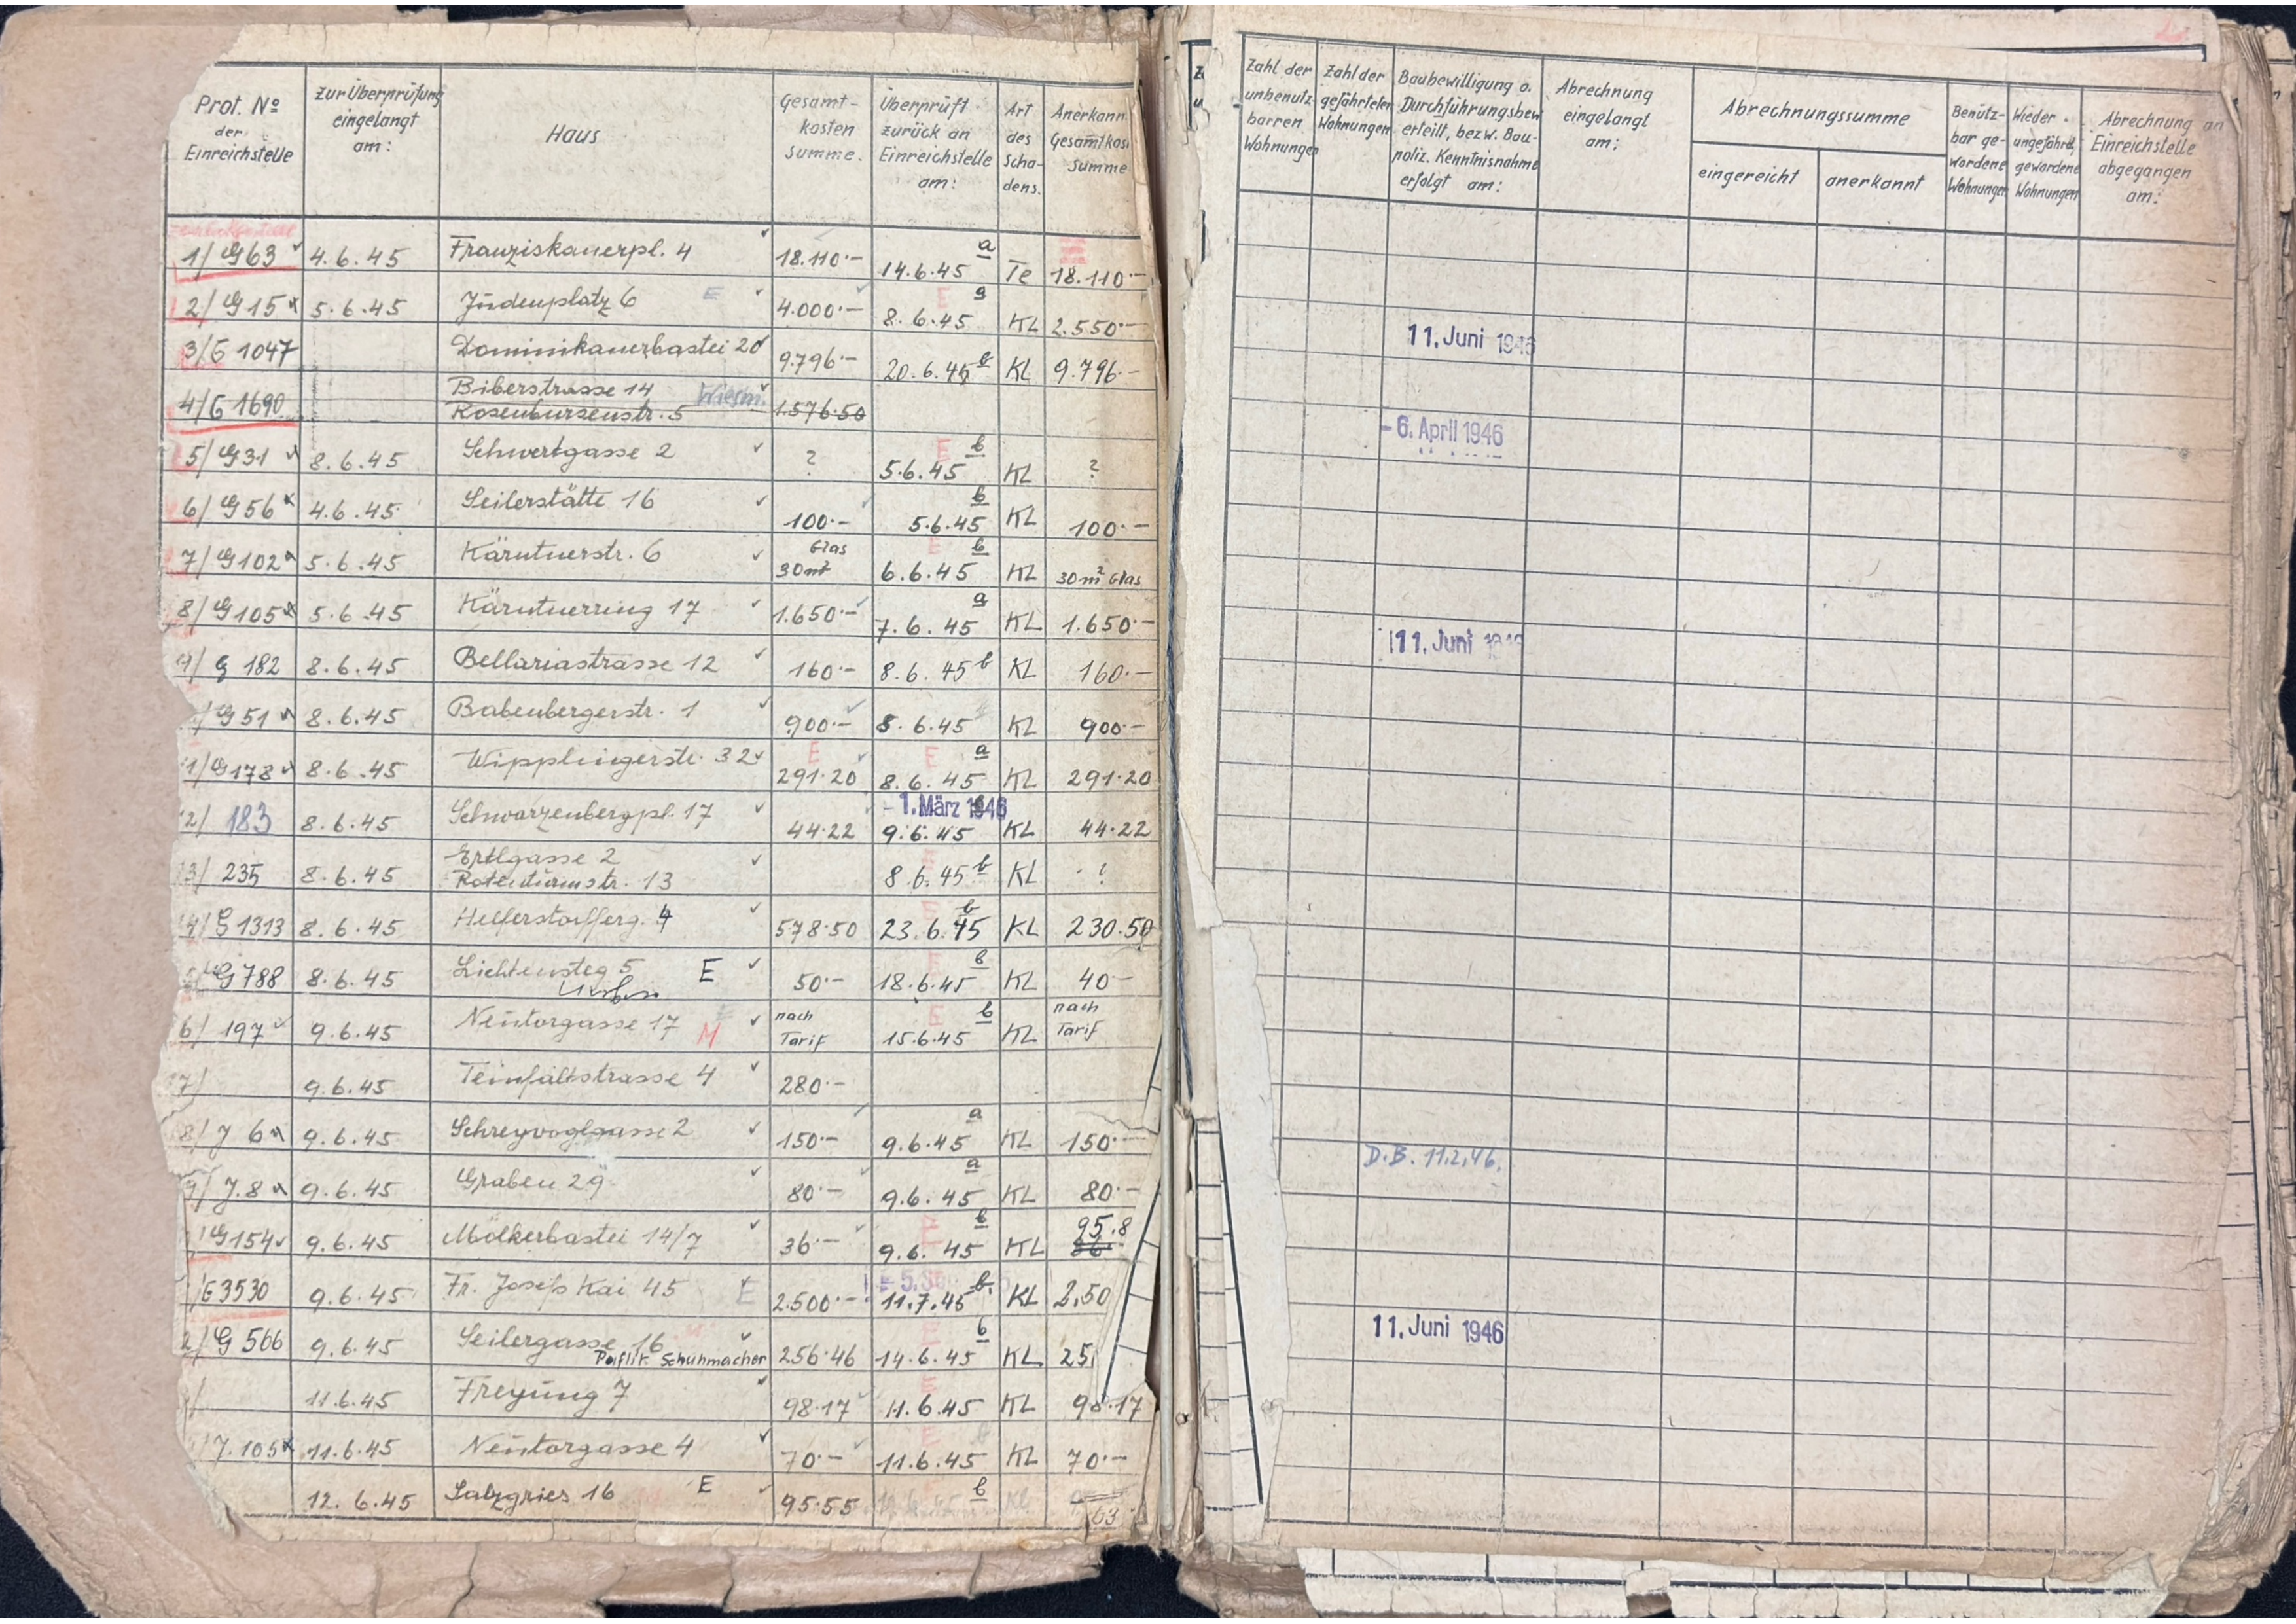 Prot. No der Einreichstelle
Zur Überprüfung eingelangt am:
Haus
Gesamt-kosten summe.
Überprüft zurück an Einreichstelle am:
Art des Scha-dens.
Anerkann Gesamtkos Summe
1/ G63 4.6.45 Franziskanerpl. 4 18.110·- 14.6.45 a Te 18.110·-
2/ G15 5.6.45 Judenplatz 6 E 4.000·- 8.6.45 KL 2.550·-
3/G 1047 Dominikanerbastei 20 9.796·- 20.6.45 b KL 9.796·-
4/G 1690 Biberstrasse 14
Rosenbursenstr. 5 Wiesm. 1.576·50
5/ G31 8.6.45 Schwertgasse 2 ? E 5.6.45 b KL ?
6/ G56 4.6.45 Seilerstätte 16 100·- 5.6.45 b KL 100·-
7/ G102 5.6.45 Kärntnerstr. 6 Glas 30m² 6.6.45 b KL 30m² Glas
8/ G105 5.6.45 Kärntnerring 17 1.650·- 7.6.45 a KL 1.650·-
9/ G 182 8.6.45 Bellariastrasse 12 160·- 8.6.45 b KL 160·-
/G51 8.6.45 Babenbergerstr. 1 900·- 8.6.45 KL 900·-
1/G178 8.6.45 Wipplingerstr. 32 E 291·20 E 8.6.45 a KL 291·20
2/ 183 8.6.45 Schwarzenbergpl. 17 44·22 - 1. März 1946 9.6.45 KL 44·22
3/ 235 8.6.45 Ertlgasse 2
Rotenturmstr. 13 8.6.45 b KL ?
4/G 1313 8.6.45 Helferstorferg. 4 578·50 23.6.45 b KL 230.50
5/G788 8.6.45 Lichtensteg 5 E 50·- 18.6.45 b KL 40-
6/ 197 9.6.45 Neutorgasse 17 M nach Tarif E 15.6.45 b KL nach Tarif
7/ 9.6.45 Teinfaltstrasse 4 280·-
8/ J 6 9.6.45 Schreyvoglgasse 2 150·- 9.6.45 a KL 150·-
9/ J.8 9.6.45 Graben 29 80·- 9.6.45 a KL 80·-
/G154 9.6.45 Mölkerbastei 14/7 36·- 9.6.45 b KL 95.8
/G3530 9.6.45 Fr. Josefs Kai 45 E 2.500·- 11.7.45 b. KL 2.50
2/G 566 9.6.45 Seilergasse 16
Schuhmacher 256·46 14.6.45 b KL 25
/ 11.6.45 Freyung 7 98·17 11.6.45 KL 98·17
/J.105 11.6.45 Neutorgasse 4 70·- 11.6.45 KL 70·-
12.6.45 Salzgries 16 E 95·55 b
63
Zahl der unbenutz-barren Wohnungen
Zahl der gefährteten Wohnungen
Baubewilligung o. Durchführungsbew erteilt, bezw. Bau-poliz. Kenntnisnahme erfolgt am:
Abrechnung eingelangt am:
Abrechnungssumme
eingereicht
anerkannt
Benütz-bar ge-wordene Wohnungen
Wieder ungefährd. gewordene Wohnungen
Abrechnung an Einreichstelle abgegangen am:
11. Juni 1946
- 6. April 1946
11. Juni 1946
D.B. 11.2.46.
11. Juni 1946